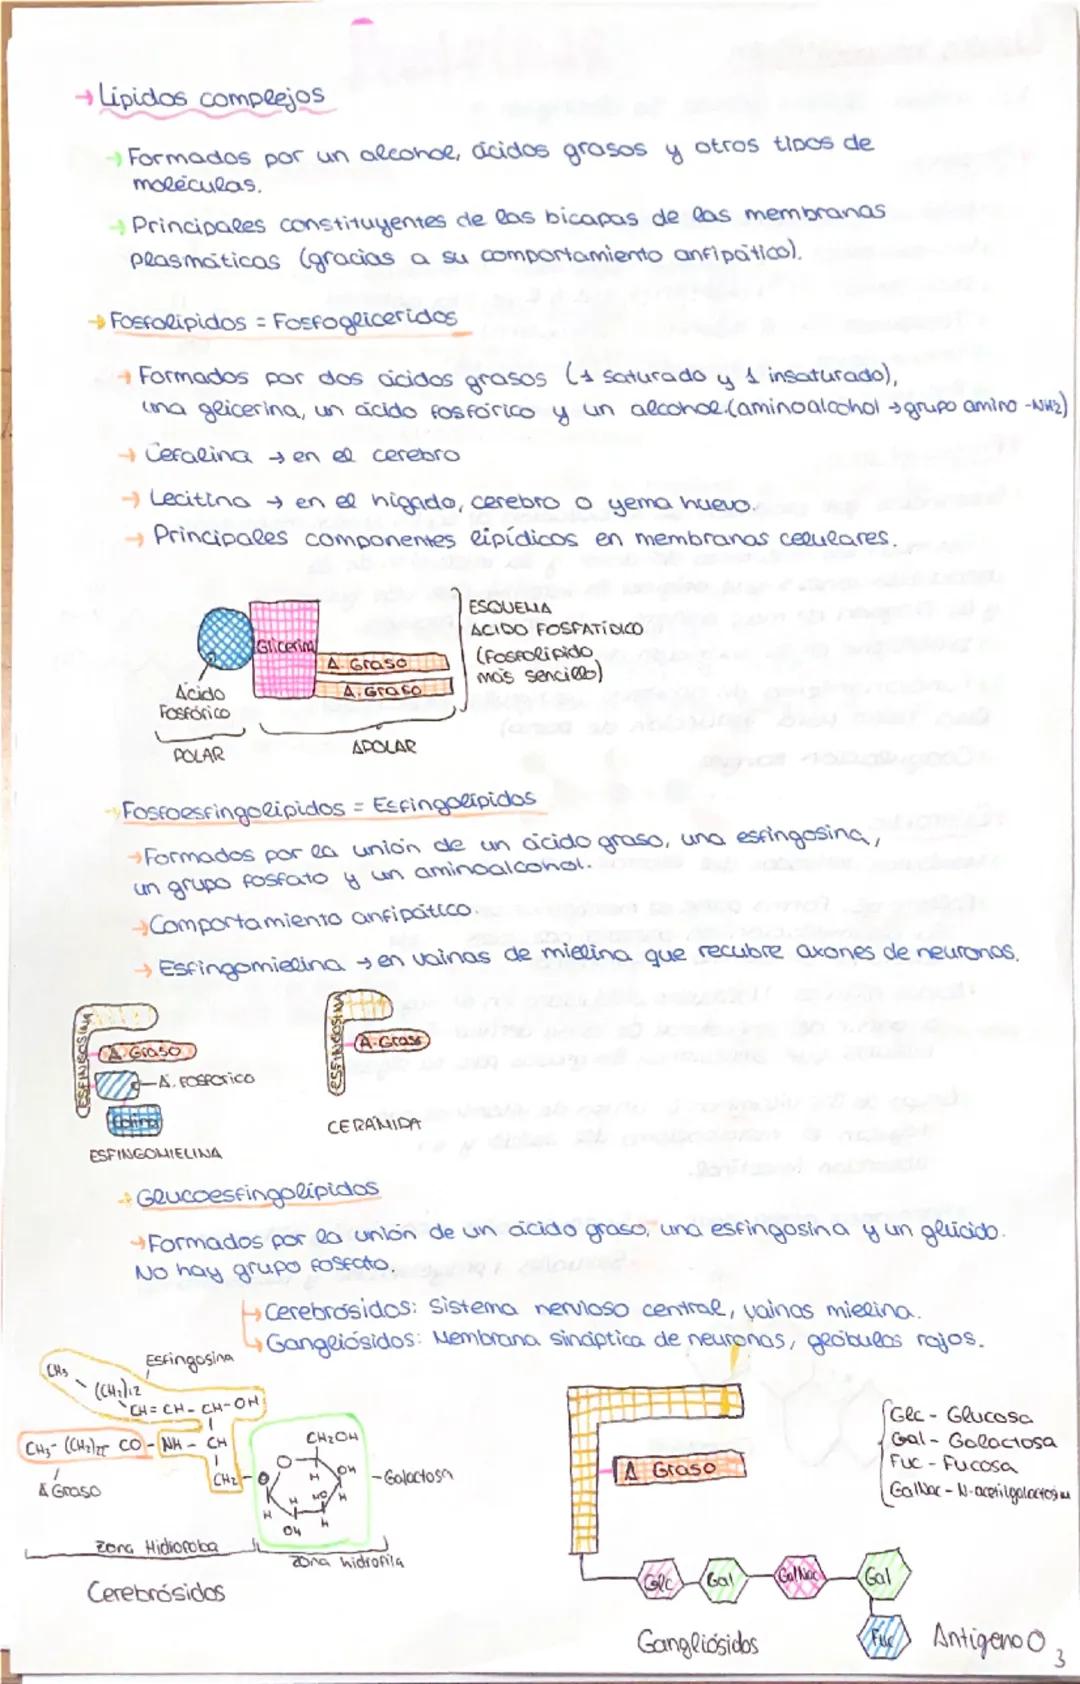 → Lípidos complejos
→ Formados por un alcohol, ácidos grasos y otros tipos de
moléculas.
→ Principales constituyentes de las bicapas de las membranas
plasmáticas (gracias a su comportamiento anfipático).
→ Fosfolípidos = Fosfoglicéridos
→ Formados por dos ácidos grasos (1 saturado y 1 insaturado),
una glicerina, un ácido fosfórico y un alcohol.(aminoalcohol → grupo amino -NH2)
→ Cefalina → en el cerebro
→ Lecitina → en el hígado, cerebro o yema huevo.
→ Principales componentes lipídicos en membranas celulares.
Glicerina
A. Graso
A. Graso
Ácido
Fosfórico
POLAR
APOLAR
ESQUEMA
ACIDO FOSFATÍDICO
(Fosfolípido
más sencillo)
→ Fosfoesfingolípidos = Esfingolípidos
→ Formados por la unión de un ácido graso, una esfingosina,
un grupo fosfato y un aminoalcohol.
→ Comportamiento anfipático.
→ Esfingomielina → en vainas de mielina que recubre axones de neuronas.
ESFINGOSINA
A. Graso
A. FOSFÓRICO
Colina
ESFINGOMIELINA
ESFINGOSINA
A. Graso
CERAMIDA
→ Glucoesfingolípidos
→ Formados por la unión de un ácido graso, una esfingosina y un glúcido.
No hay grupo fosfato.
↳ Cerebrósidos: Sistema nervioso central, vainas mielina.
↳ Gangliósidos: Membrana sináptica de neuronas, glóbulos rojos.
Esfingosina
CH3
(CH2)12
CH = CH - CH - OH
CH3 - (CH2)
CO - NH - CH
CH2 - O
A Graso
CH2OH
O
H
OH
H
HO
H
H
OH
H
- Galactosa
Zona Hidrofoba
zona hidrofila
Cerebrósidos
A Graso
Glc - Glucosa
Gal - Galactosa
Fuc - Fucosa
GalNac - N-acetilgalactosamina
Glc
Gal
GalNac
Gal
Fuc
Gangliósidos
Antígeno O
3